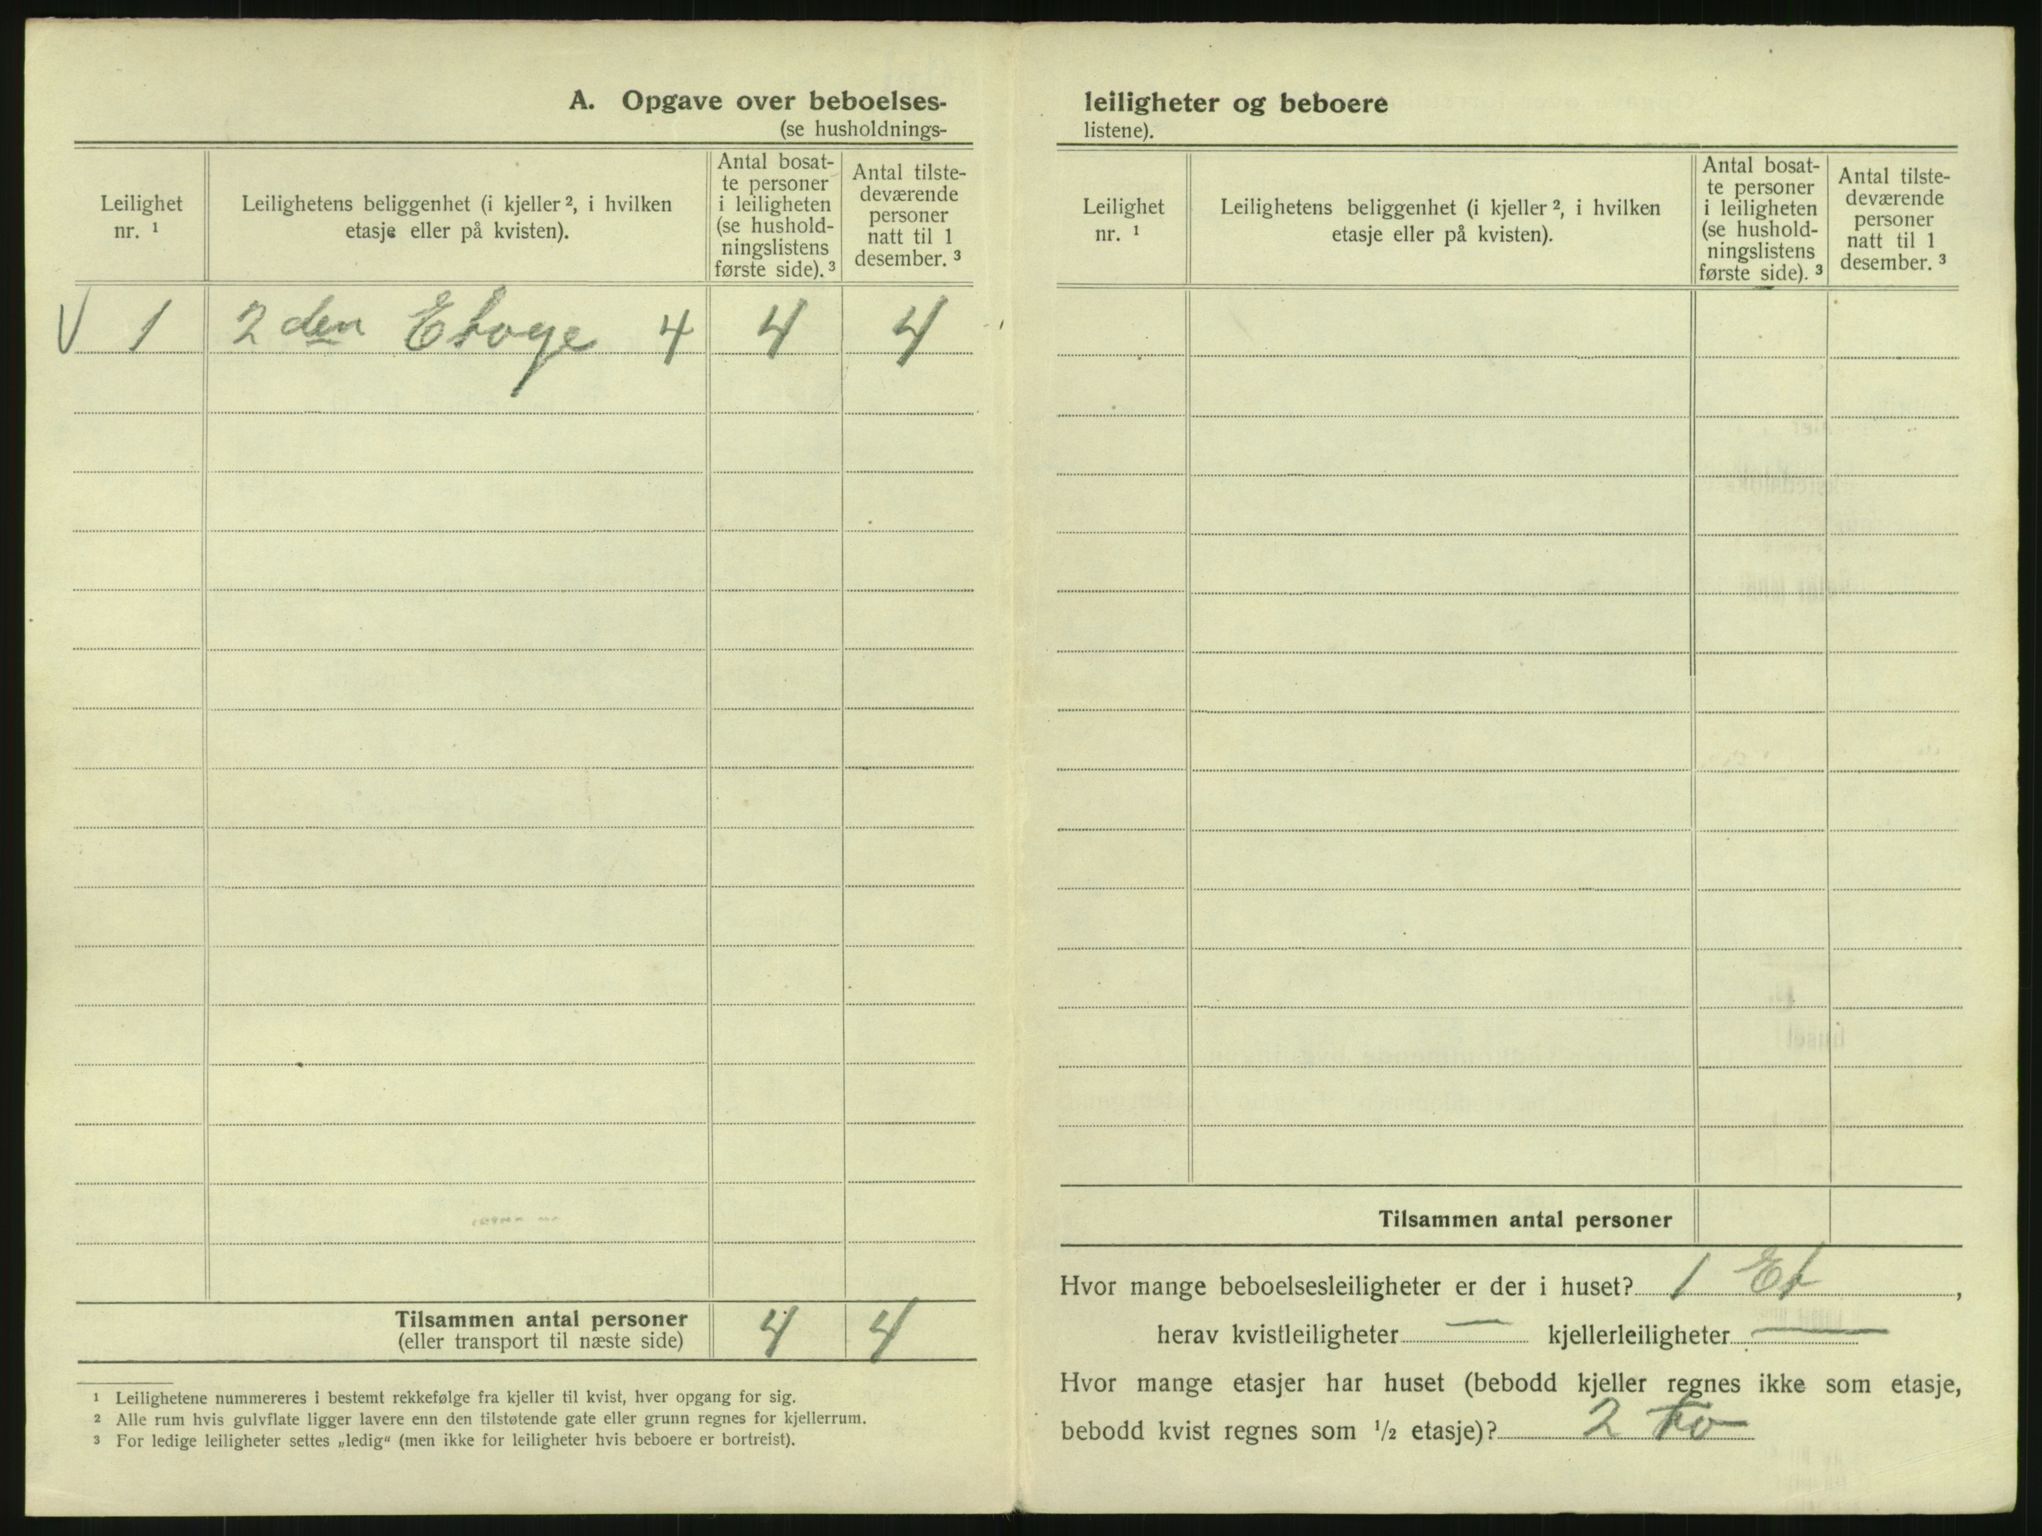 A. Opgave over beboelses-
(se husholdnings-
Leilighet
nr. ¹
Leilighetens beliggenhet (i kjeller ², i hvilken
etasje eller på kvisten).
Antal bosat-
te personer
i leiligheten
(se hushold-
ningslistens
første side). ³
Antal tilste-
deværende
personer
natt til 1
desember. ³
V 1 2 den Etage 4 4 4
Tilsammen antal personer 4 4
(eller transport til næste side)
¹ Leilighetene nummereres i bestemt rekkefølge fra kjeller til kvist, hver opgang for sig.
² Alle rum hvis gulvflate ligger lavere enn den tilstøtende gate eller grunn regnes for kjellerrum.
³ For ledige leiligheter settes „ledig“ (men ikke for leiligheter hvis beboere er bortreist).
leiligheter og beboere
listene).
Leilighet
nr. ¹
Leilighetens beliggenhet (i kjeller ², i hvilken
etasje eller på kvisten).
Antal bosat-
te personer
i leiligheten
(se hushold-
ningslistens
første side). ³
Antal tilste-
deværende
personer
natt til 1
desember. ³
Tilsammen antal personer
Hvor mange beboelsesleiligheter er der i huset? 1 Et,
herav kvistleiligheter — kjellerleiligheter —
Hvor mange etasjer har huset (bebodd kjeller regnes ikke som etasje,
bebodd kvist regnes som ½ etasje)? 2 to